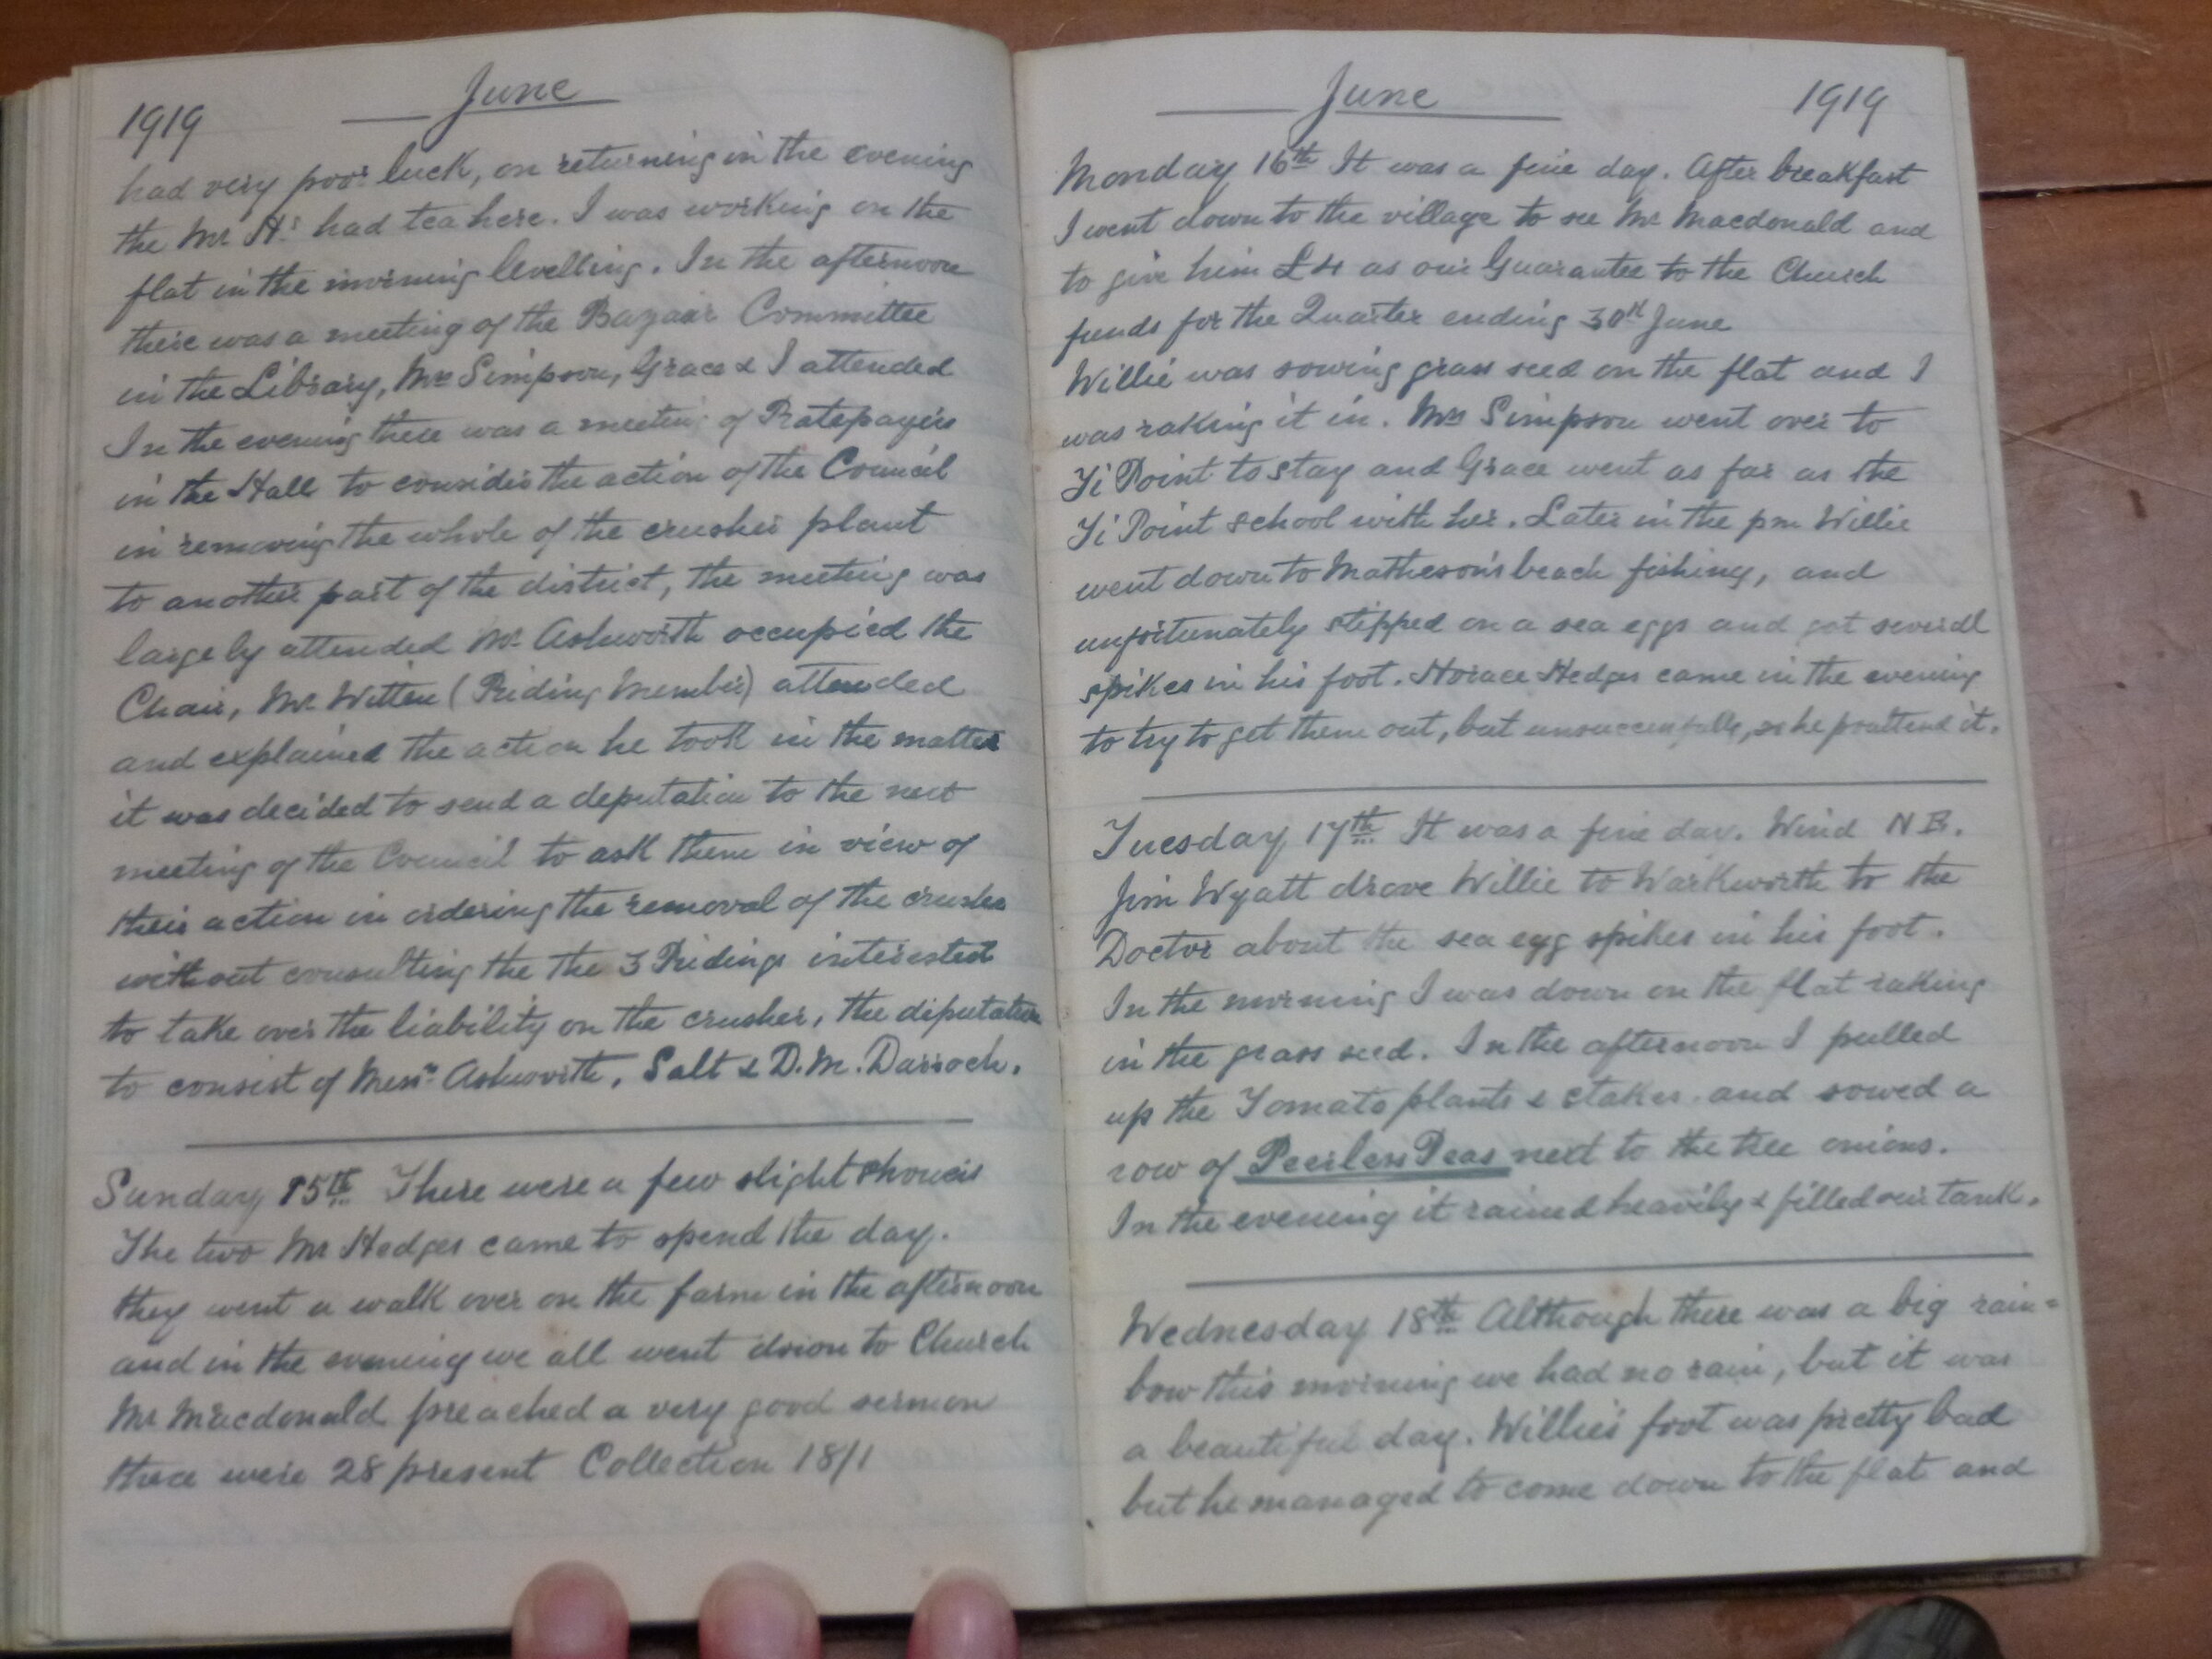 1919 June
had very poor luck, on returning in the evening
the Mr H's had tea here. I was working on the
flat in the morning levelling. In the afternoon
there was a meeting of the Bazaar Committee
in the Library, Mrs Simpson, Grace & I attended
In the evening there was a meeting of Ratepayers
in the Hall to consider the action of the Council
in removing the whole of the crusher plant
to another part of the district, the meeting was
largely attended Mr. Ashworth occupied the
Chair, Mr Witten (Riding Member) attended
and explained the action he took in the matter
it was decided to send a deputation to the next
meeting of the Council to ask them in view of
their action in ordering the removal of the crusher
without consulting the the 3 Ridings interested
to take over the liability on the crusher, the deputation
to consist of Messrs. Ashworth, Salt & D.M. Darroch.
Sunday 15th There were a few slight showers
The two Mr Hedges came to spend the day.
they went a walk over on the farm in the afternoon
and in the evening we all went down to Church
Mr Macdonald preached a very good sermon
there were 28 present Collection 18/1
June 1919
Monday 16th It was a fine day. After breakfast
I went down to the village to see Mr Macdonald and
to give him £4 as our Guarantee to the Church
funds for the Quarter ending 30th June
Willie was sowing grass seed on the flat and I
was raking it in. Mrs Simpson went over to
Ti Point to stay and Grace went as far as the
Ti Point school with her. Later in the pm Willie
went down to Matheson's beach fishing, and
unfortunately stepped on a sea eggs and got several
spikes in his foot. Horace Hedges came in the evening
to try to get them out, but unsuccessfully, so he it.
Tuesday 17th It was a fine day. Wind N E.
Jim Wyatt drove Willie to Warkworth to the
Doctor about the sea egg spikes in his foot.
In the morning I was down on the flat raking
in the grass seed. In the afternoon I pulled
up the Tomato plants & stakes and sowed a
row of Peerless Peas next to the tree onions.
In the evening it rained heavily & filled our tank.
Wednesday 18th Although there was a big rain=
bow this morning we had no rain, but it was
a beautiful day. Willie's foot was pretty bad
but he managed to come down to the flat and